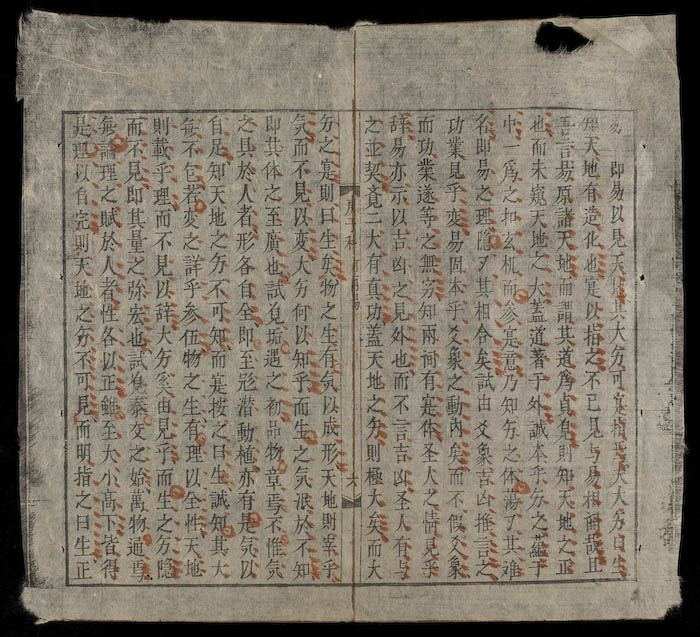 易　即易以見天地其大分可寔指聖人大分曰生
知天地有造化也寔以指之不已見與易相哉且
言易原諸天地而謂其道為貞則知天地之正
也而未窺天地之大蓋道著于外誠本乎分之蘊于
中一為之扣玄机而參寔意乃知分之体蕩了其难
名即易之理隐其相合矣試由爻象吉凶推言之
功業見乎变易固本乎爻象之動內矣而不假爻象
而功業遂等之無穷知兩间有寔体圣人之情見乎
辞易亦示以吉凶之見外也而不言吉凶圣人有与
之並契竟二大有真功蓋天地之分則極大矣而大
科 易
六
分之寔則曰生矣物之生有気以成形天地則宰乎
気而不見以变大分何以知乎而生之気泯於不知
即其体之至廣也試垢遇之初品物章焉不惟気
之具於人者形各自全即至形潜動植亦有是気以
自足知天地之分不可知而寔按之曰生誠知其大
無不包若变之詳乎參伍物之生有理以全性天地
則載乎理而不見以詳大分奚由見乎而生之分隐
而不見即其量之弥宏也試泰交之始萬物通焉
無論理之賦於人者性各以正雖至大小高下皆得
是理以自完則天地之分不可見而明指之曰生正